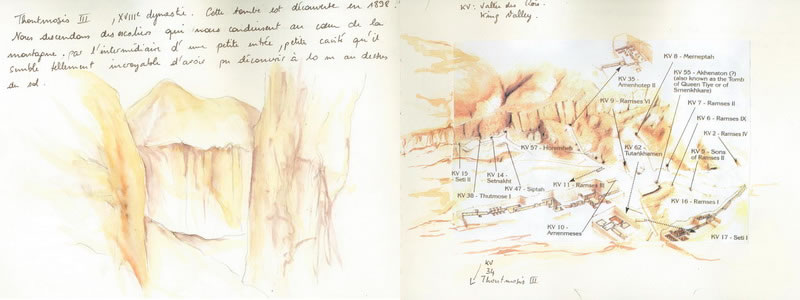 Thoutmosis III, XVIIIe dynastie. Cette tombe est découverte en 1898
Nous descendons des escaliers qui nous conduisent au cœur de la
montagne. par l'intermédiaire d'une petite entrée, petite cavité qu'il
semble tellement incroyable d'avoir pu découvrir à 10 m au dessus
du sol.
KV: Vallée des Rois.
King Valley.
KV 35
Amenhotep II
KV 8 - Merneptah
KV 55 - Akhenaton (?)
(also known as the Tomb
of Queen Tiye or of
Smenkhkare)
KV 9 - Ramses VI
KV 7 - Ramses II
KV 6 - Ramses IX
KV 2 - Ramses IV
KV 57 - Horemheb
KV 62
Tutankhamen
KV 5 - Sons
of Ramses II
KV 15
Seti II
KV 14
Setnakht
KV 47 - Siptah
KV 38 - Thutmose I
KV 11 - Ramses III
KV 16 - Ramses I
KV 10
Amenmeses
KV 17 - Seti I
KV
34
Thoutmosis III